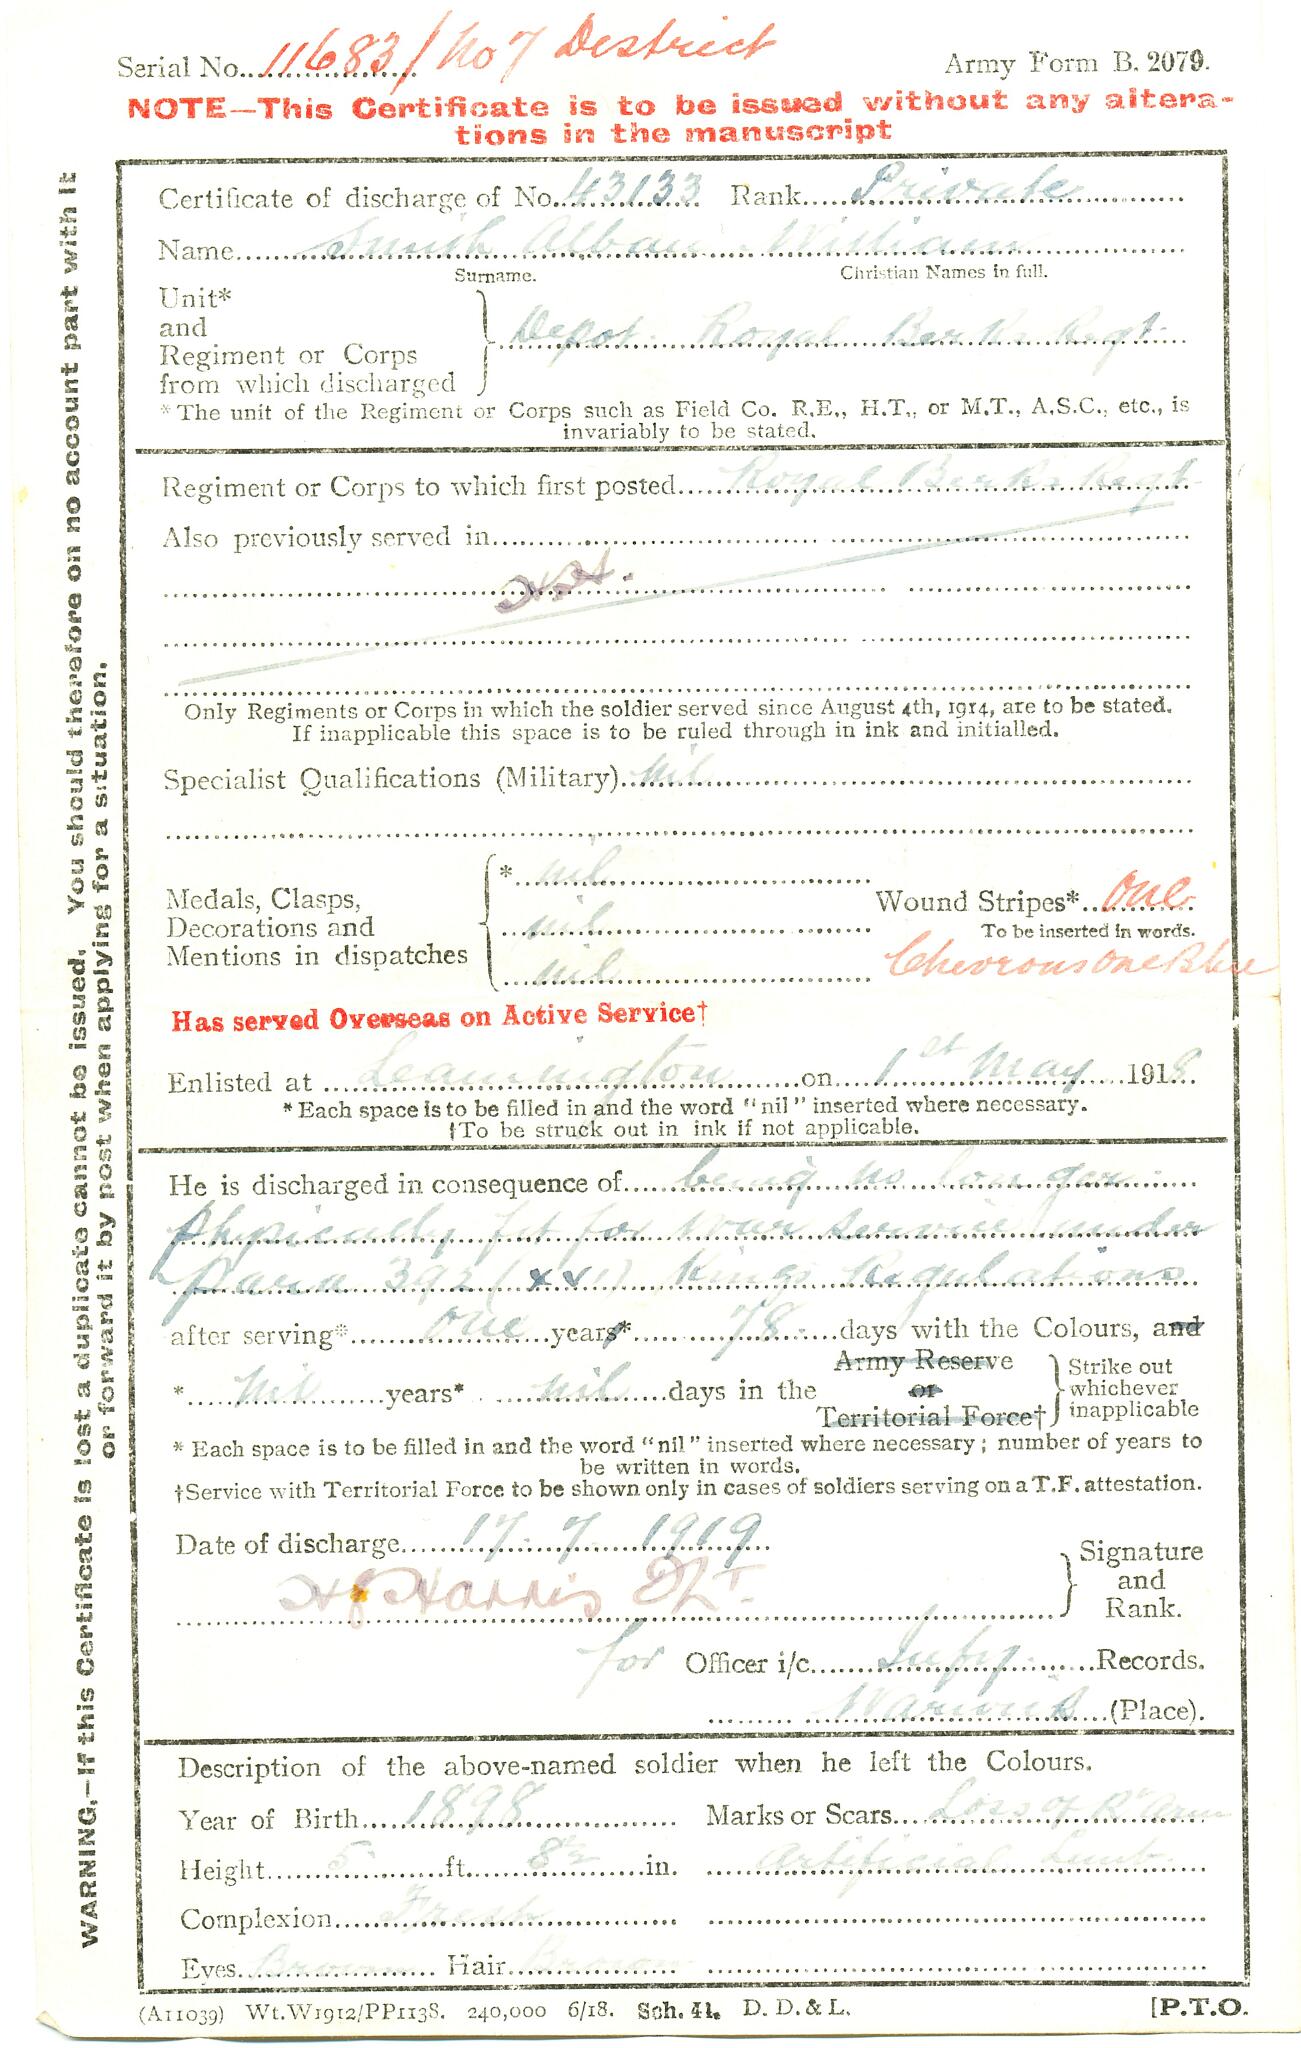 Serial No. 11683/No 7 District
Army Form B. 2079.
NOTE—This Certificate is to be issued without any altera-
tions in the manuscript
WARNING.—If this Certificate is lost a duplicate cannot be issued. You should therefore on no account part with it
or forward it by post when applying for a situation.
Certificate of discharge of No. 43133 Rank Private
Name Smith Alban William
Surname. Christian Names in full.
Unit*
and
Regiment or Corps
from which discharged
Depot. Royal Berks Regt.
*The unit of the Regiment or Corps such as Field Co. R.E., H.T., or M.T., A.S.C., etc., is
invariably to be stated.
Regiment or Corps to which first posted Royal Berks Regt
Also previously served in
Only Regiments or Corps in which the soldier served since August 4th, 1914, are to be stated.
If inapplicable this space is to be ruled through in ink and initialled.
Specialist Qualifications (Military) Nil
Medals, Clasps,
Decorations and
Mentions in dispatches
* nil
nil
nil
Wound Stripes* One
To be inserted in words.
Chevrons One Blue
Has served Overseas on Active Service†
Enlisted at Leamington on 1st May 1918
*Each space is to be filled in and the word "nil" inserted where necessary.
†To be struck out in ink if not applicable.
He is discharged in consequence of being no longer
physically fit for War Service under
para 392 (xvi) Kings Regulations
after serving* One years* 78 days with the Colours, and
* Nil years* nil days in the
Army Reserve
or
Territorial Force†
Strike out
whichever
inapplicable
* Each space is to be filled in and the word "nil" inserted where necessary; number of years to
be written in words.
†Service with Territorial Force to be shown only in cases of soldiers serving on a T.F. attestation.
Date of discharge 17.7.1919
Harris
Signature
and
Rank.
for Officer i/c Infy. Records.
Warwick (Place).
Description of the above-named soldier when he left the Colours.
Year of Birth 1898 Marks or Scars Loss of Rt Arm
Height 5 ft. 8½ in. Artificial Limb
Complexion Fresh
Eyes Brown Hair Brown
(A11039) Wt.W1912/PP1138. 240,000 6/18. Sch. 41. D. D. & L.
[P.T.O.